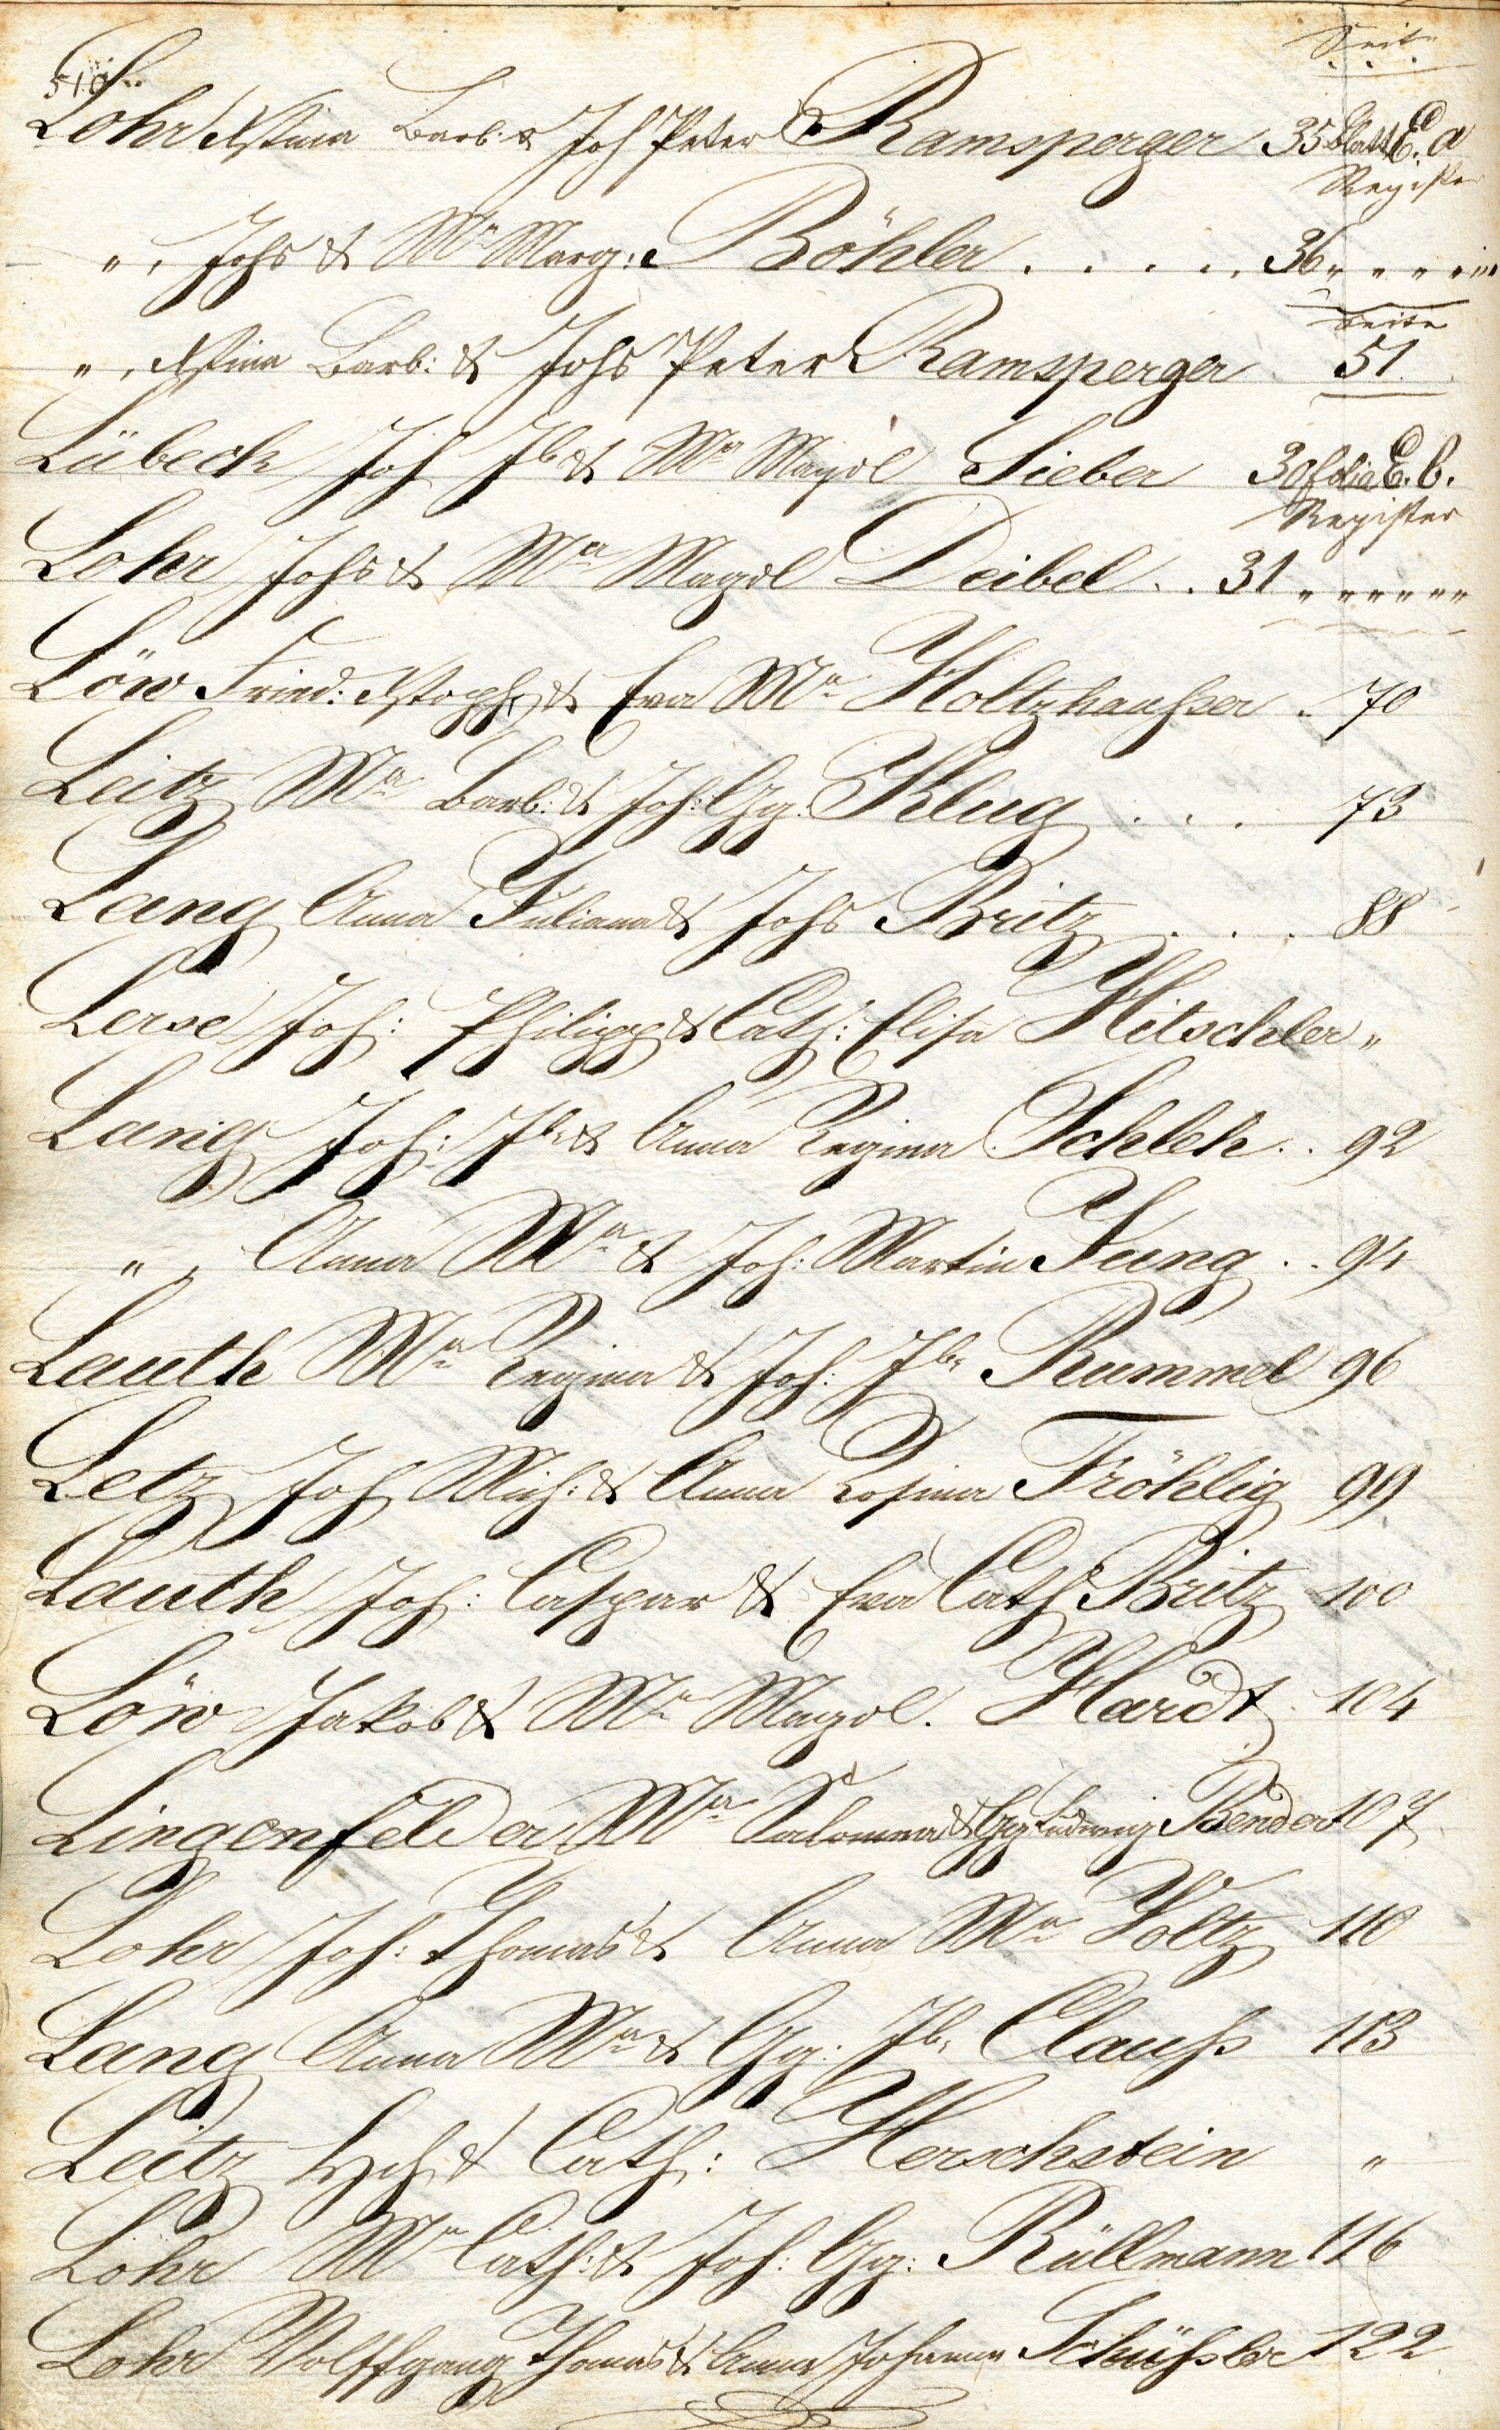 Seite
510
Lohr Xstina Barb: & Joh Peter Ramsperger 35 Blatt E. a
Register
" , Johs & Ma Marg: Böhler . . . . . 36 " " " " "
Seite
" , Xstina Barb: & Johs Peter Ramsperger 51
Lübeck Joh Jb & Ma Magdl Sieber 30 folia E. b.
Register
Lohr Johs & Ma Magdl Deibel . . 31 " " " " " "
Löw Fried: Xstoph & Eva Ma Holtzhausser . 70
Leitz Ma Barb: & Joh: Gg: Klug . . . 73
Lang Anna Juliana & Johs Britz . . . 88
Lerse Joh: Philipp & Cath: Elisa Hitschler "
Lang Joh: Jb & Anna Regina Schleh . . 92
" , Anna Ma & Joh: Martin Jung . . 94
Lauth Ma Regina & Joh: Jb Rummel 96
Letz Joh Mich: & Anna Rosina Fröhlig 99
Lauth Joh: Caspar & Eva Cath Britz 100
Löw Jakob & Ma Magdl. Hardt 104
Lingenfelder Ma Salomea & Gg Ludwig Bender 107
Lohr Joh: Thomas & Anna Ma Voltz 110
Lang Anna Ma & Gg: Jb Clauß 113
Leitz Hch & Cath: Herschstein "
Lohr Ma Cath: & Joh: Gg: Rüllmann 116
Lohr Wolffgang Thomas & Anna Johanna Schüßler 122